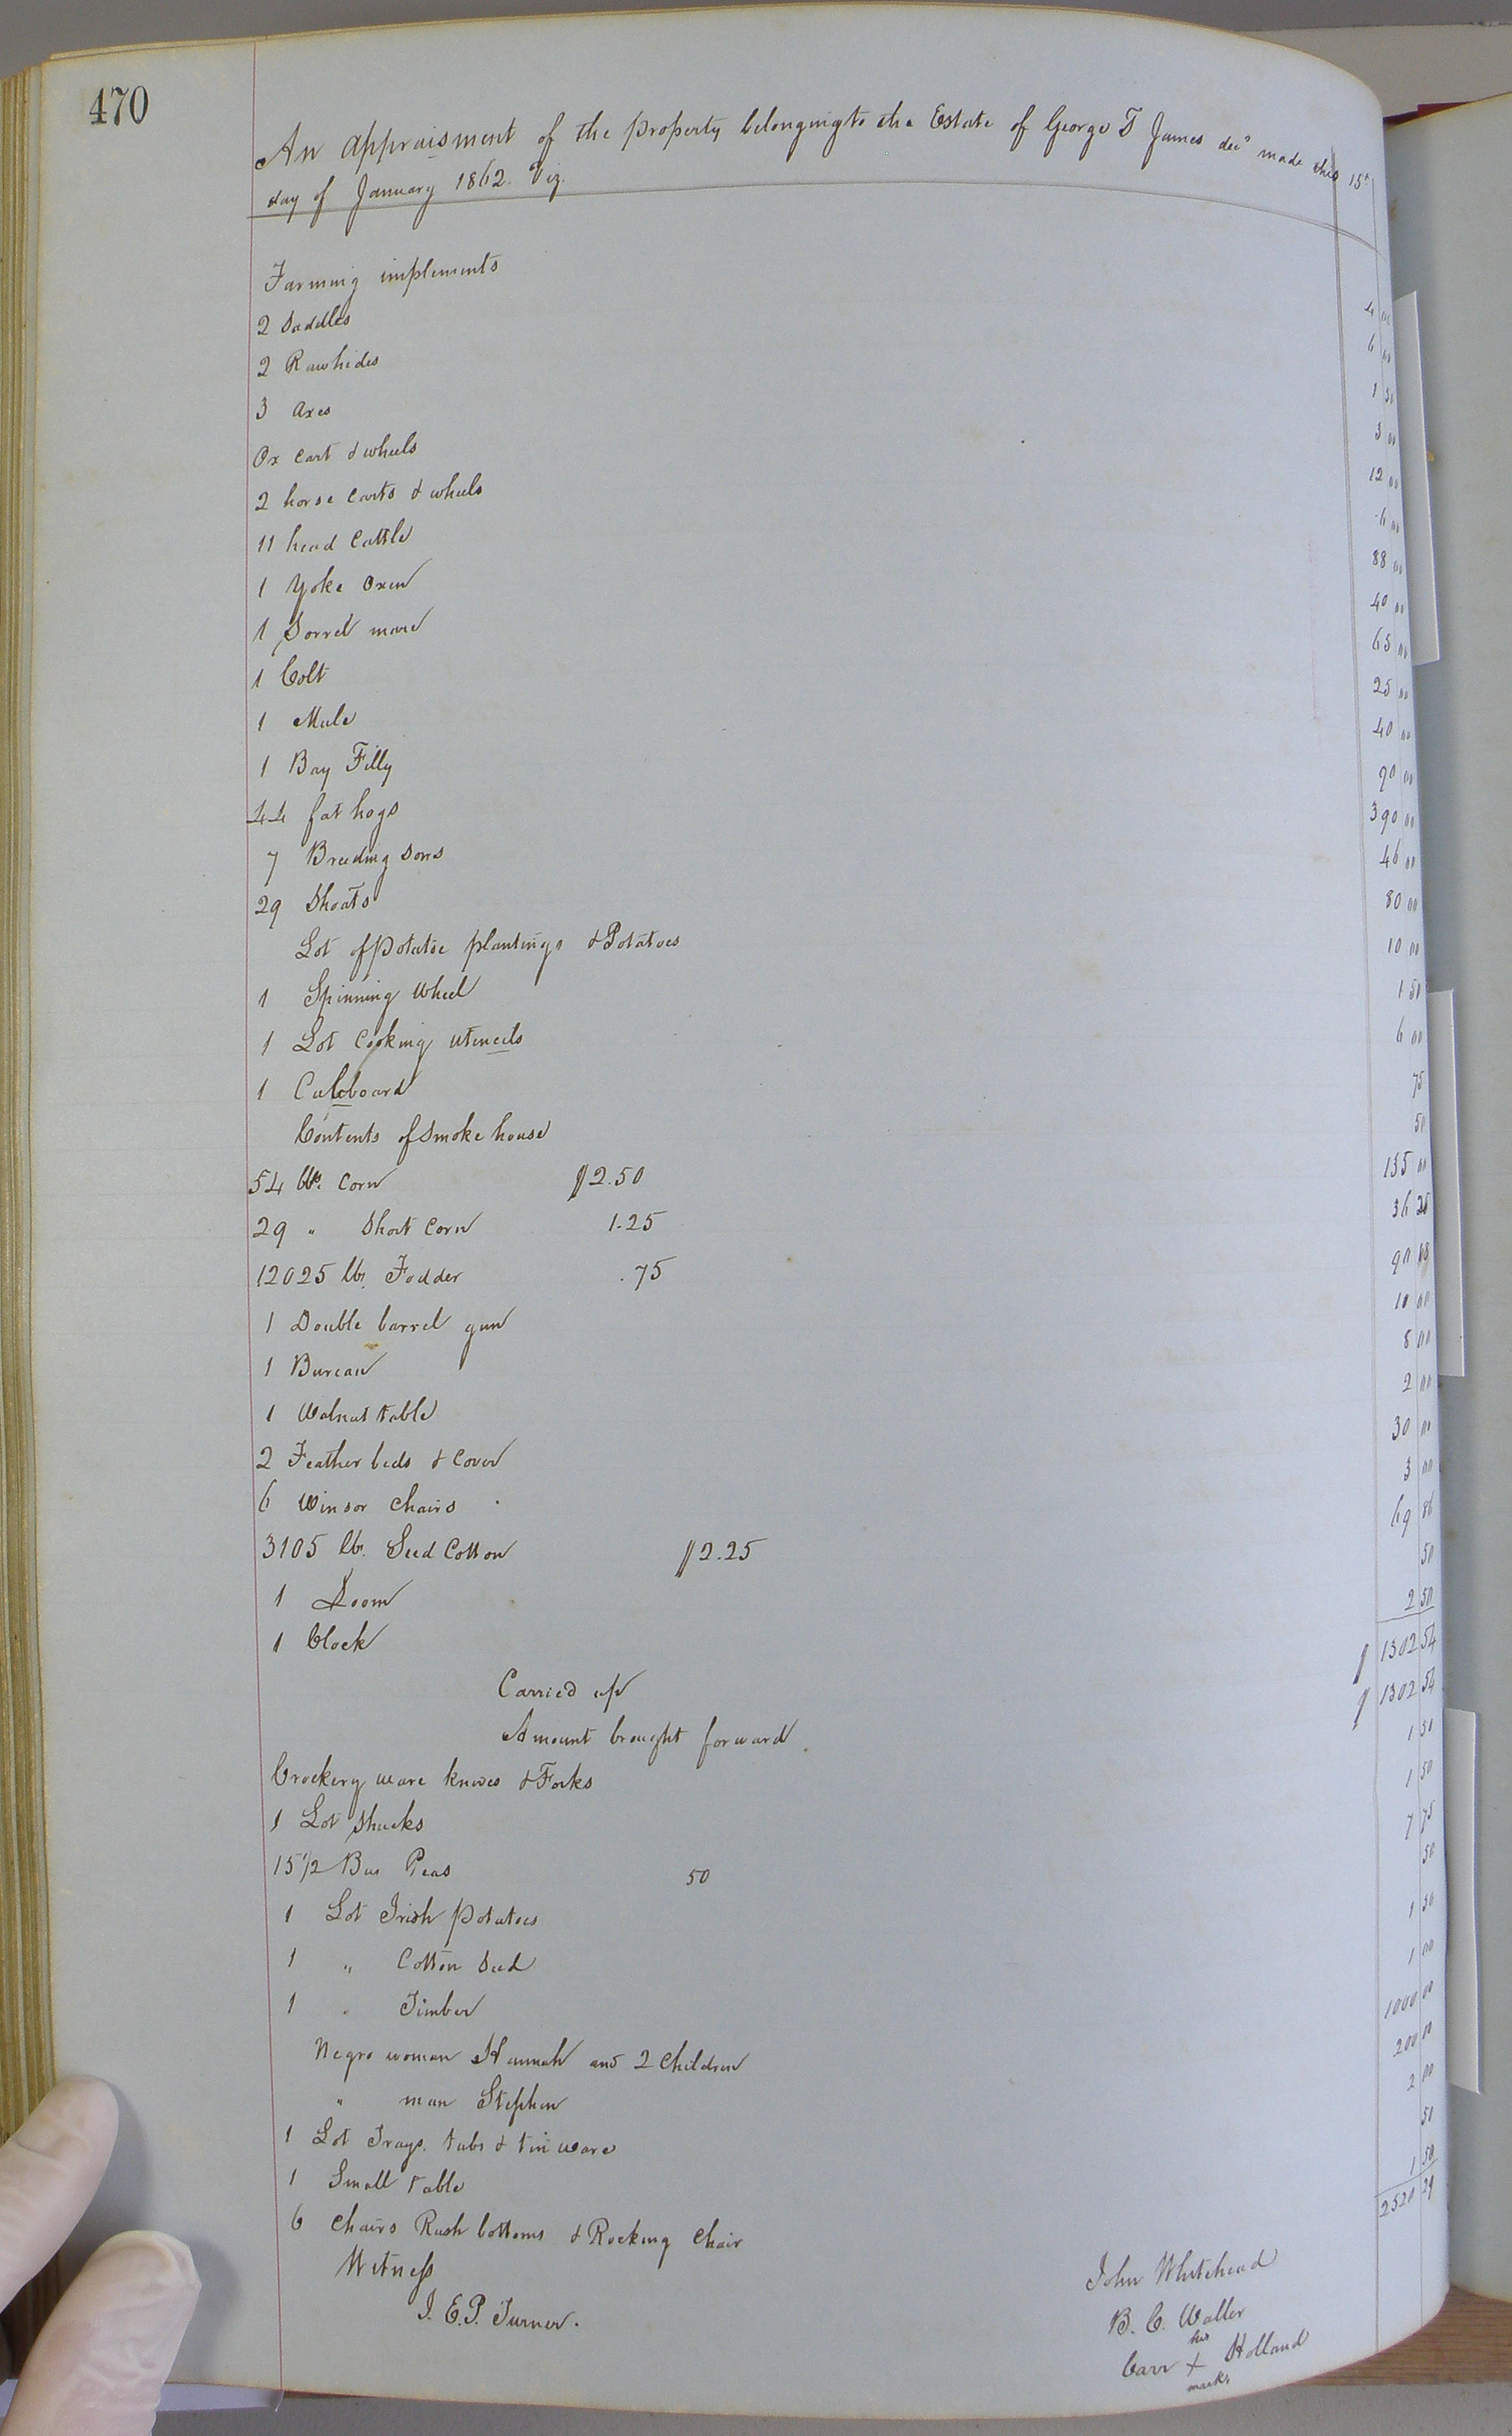 470
An appraisment of the property belonging to the Estate of George T James decd made this 15th
day of January 1862. Viz.
Farming implements 4 00
2 Saddles 6 00
2 Rawhides 1 50
3 Axes 3 00
Ox Cart & wheels 12 00
2 horse Carts & wheels 6 00
11 head Cattle 88 00
1 Yoke Oxen 40 00
1 Sorrel mare 65 00
1 Colt 25 00
1 Mule 40 00
1 Bay Filly 90 00
44 fat hogs 390 00
7 Breeding Sows 46 00
29 Shoats 80 00
Lot of Potatoe plantings & Potatoes 10 00
1 Spinning Wheel 1 50
1 Lot Cooking utencils 6 00
1 Cubboard 75
Contents of Smoke house 50
54 bbl. Corn $2.50 135 00
29 " Short Corn 1.25 36 25
12025 lbs. Fodder .75 90 18
1 Double barrel gun 10 00
1 Bureau 8 00
1 Walnut table 2 00
2 Feather beds & Cover 30 00
6 Winsor Chairs 3 00
3105 lbs. Seed Cotton $2.25 69 86
1 Loom 50
1 Clock 2 50
Carried up $ 1302 54
Amount brought forward $ 1302 54
Crockery ware knives & Forks 1 50
1 Lot Shucks 1 50
15 1/2 Bus Peas 50 7 75
1 Lot Irish Potatoes 50
1 " Cotton Seed 1 50
1 " Timber 1 00
Negro woman Hannah and 2 Children 1000 00
" man Stephen 200 00
1 Lot Trays. tubs & tin ware 2 00
1 Small table 50
6 Chairs Rush bottoms & Rocking Chair 1 50
2520 29
Witness
J. E. P. Turner.
John Whitehead
B. C. Waller
his
Carr + Holland
mark